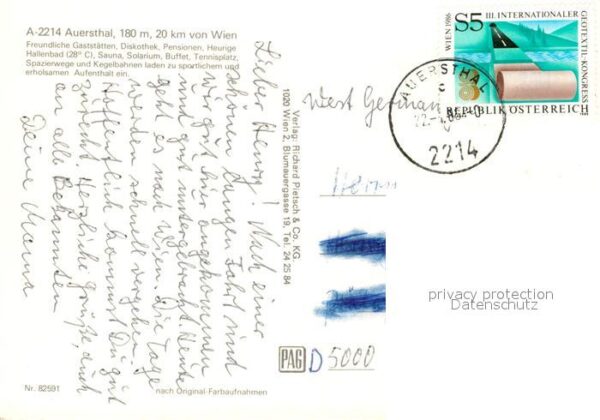 A-2214 Auersthal, 180 m, 20 km von Wien
Freundliche Gaststätten, Diskothek, Pensionen, Heurige
Hallenbad (28° C), Sauna, Solarium, Buffet, Tennisplatz,
Spazierwege und Kegelbahnen laden zu sportlichem und
erholsamen Aufenthalt ein.
Lieber Henry! Nach einer
schönen langen Fahrt sind
wir gut hier angekommen
und gut untergebracht. Heute
geht es nach Wien. Die Tage
werden schnell vergehen.
Hoffentlich kommst Du gut
zurecht. Herzliche Grüße, auch
an alle Bekannten
Deine Mama
Nr. 82591
nach Original-Farbaufnahmen
Verlag: Richard Pietsch & Co. KG.
1020 Wien 2, Blumauergasse 19, Tel. 24 25 84
PAG
S5 III. INTERNATIONALER
GEOTEXTIL-KONGRESS
WIEN 1986
REPUBLIK ÖSTERREICH
AUERSTHAL
c
2214
West German
Herrn
D 5000
privacy protection
Datenschutz